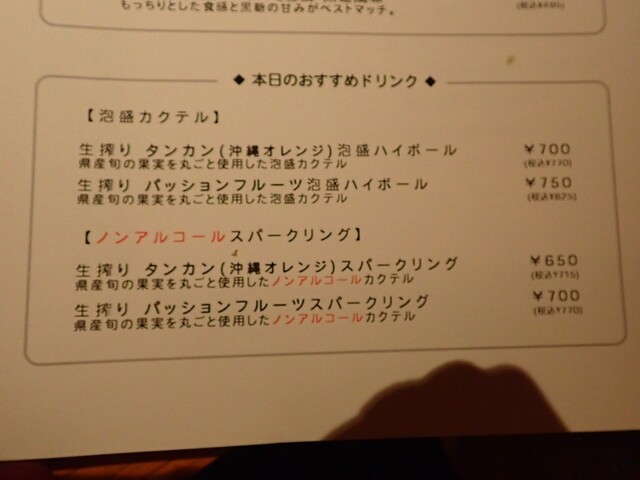 もっちりとした食感と黒糖の甘みがベストマッチ。
◆ 本日のおすすめドリンク ◆
【泡盛カクテル】
生搾り タンカン(沖縄オレンジ)泡盛ハイボール ¥700
県産旬の果実を丸ごと使用した泡盛カクテル (税込¥770)
生搾り パッションフルーツ泡盛ハイボール ¥750
県産旬の果実を丸ごと使用した泡盛カクテル (税込¥825)
【ノンアルコールスパークリング】
生搾り タンカン(沖縄オレンジ)スパークリング ¥650
県産旬の果実を丸ごと使用したノンアルコールカクテル (税込¥715)
生搾り パッションフルーツスパークリング ¥700
県産旬の果実を丸ごと使用したノンアルコールカクテル (税込¥770)